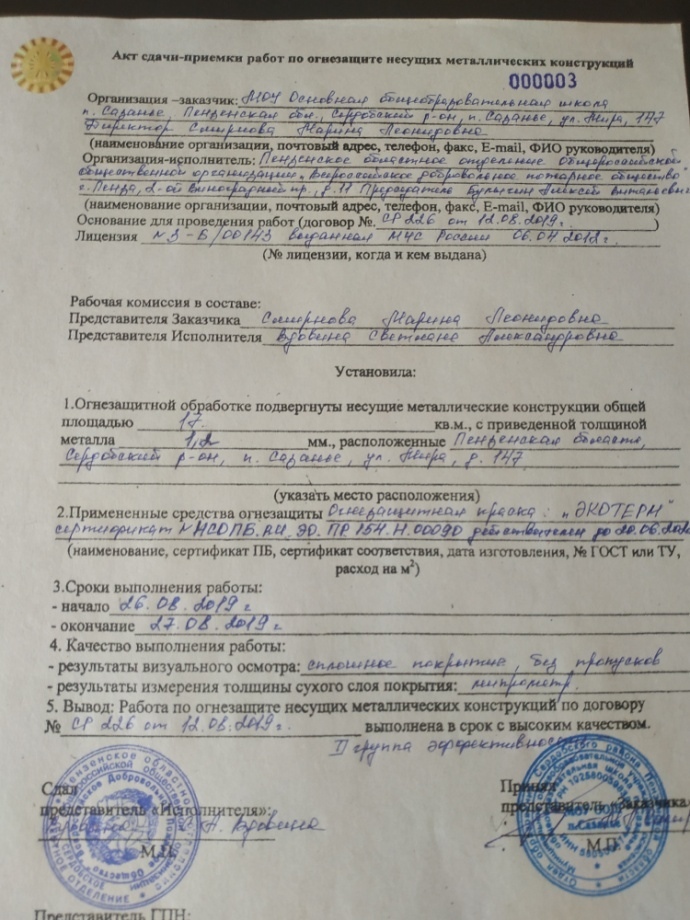 Акт сдачи-приемки работ по огнезащите несущих металлических конструкций
000003
Организация –заказчик: МОУ Основная общеобразовательная школа
п. Сазанье, Пензенская обл., Сердобский р-он, п. Сазанье, ул. Мира, 147
Директор Смирнова Марина Леонидовна
(наименование организации, почтовый адрес, телефон, факс, E-mail, ФИО руководителя)
Организация-исполнитель: Пензенское областное отделение общероссийской
общественной организации „Всероссийское добровольное пожарное общество"
г. Пенза, 2-ой Виноградный пр., д. 11 Председатель Алексей Витальевич
(наименование организации, почтовый адрес, телефон, факс, E-mail, ФИО руководителя)
Основание для проведения работ (договор №. СР 226 от 12.08.2019г. )
Лицензия №3-Б/00143 выданная МЧС России 06.04 2012г.
(№ лицензии, когда и кем выдана)
Рабочая комиссия в составе:
Представителя Заказчика Смирнова Марина Леонидовна
Представителя Исполнителя Вдовина Светлана Александровна
Установила:
1.Огнезащитной обработке подвергнуты несущие металлические конструкции общей
площадью 17 кв.м., с приведенной толщиной
металла 1,2 мм., расположенные Пензенская область,
Сердобский р-он, п. Сазанье, ул. Мира, д. 147
(указать место расположения)
2.Примененные средства огнезащиты Огнезащитная краска: „ЭКОТЕРМ"
сертификат № НСОПБ.RU.ЭО.ПР.154.Н.00090 действителен до 20.06.
(наименование, сертификат ПБ, сертификат соответствия, дата изготовления, № ГОСТ или ТУ,
расход на м²)
3.Сроки выполнения работы:
- начало 26.08.2019г
- окончание 27.08.2019г
4. Качество выполнения работы:
- результаты визуального осмотра: сплошное покрытие, без пропусков
- результаты измерения толщины сухого слоя покрытия: микрометр.
5. Вывод: Работа по огнезащите несущих металлических конструкций по договору
№ СР 226 от 12.08.2019г. выполнена в срок с высоким качеством.
II группа эффективности
Сдал
представитель «Исполнителя»:
Вдовина
М.П.
Принял
представитель «Заказчика
М.П.
Представитель ГПН: